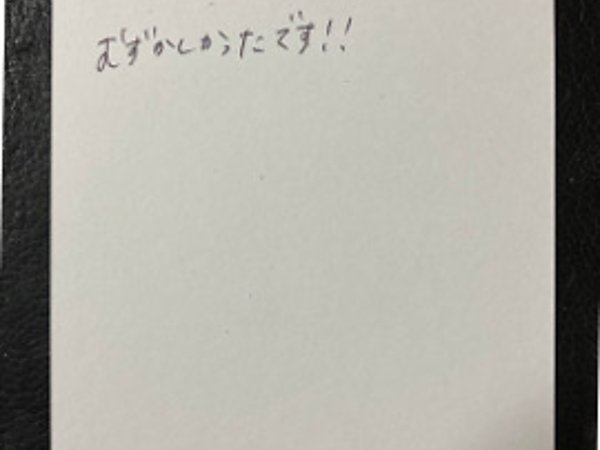 むずかしかったです!!